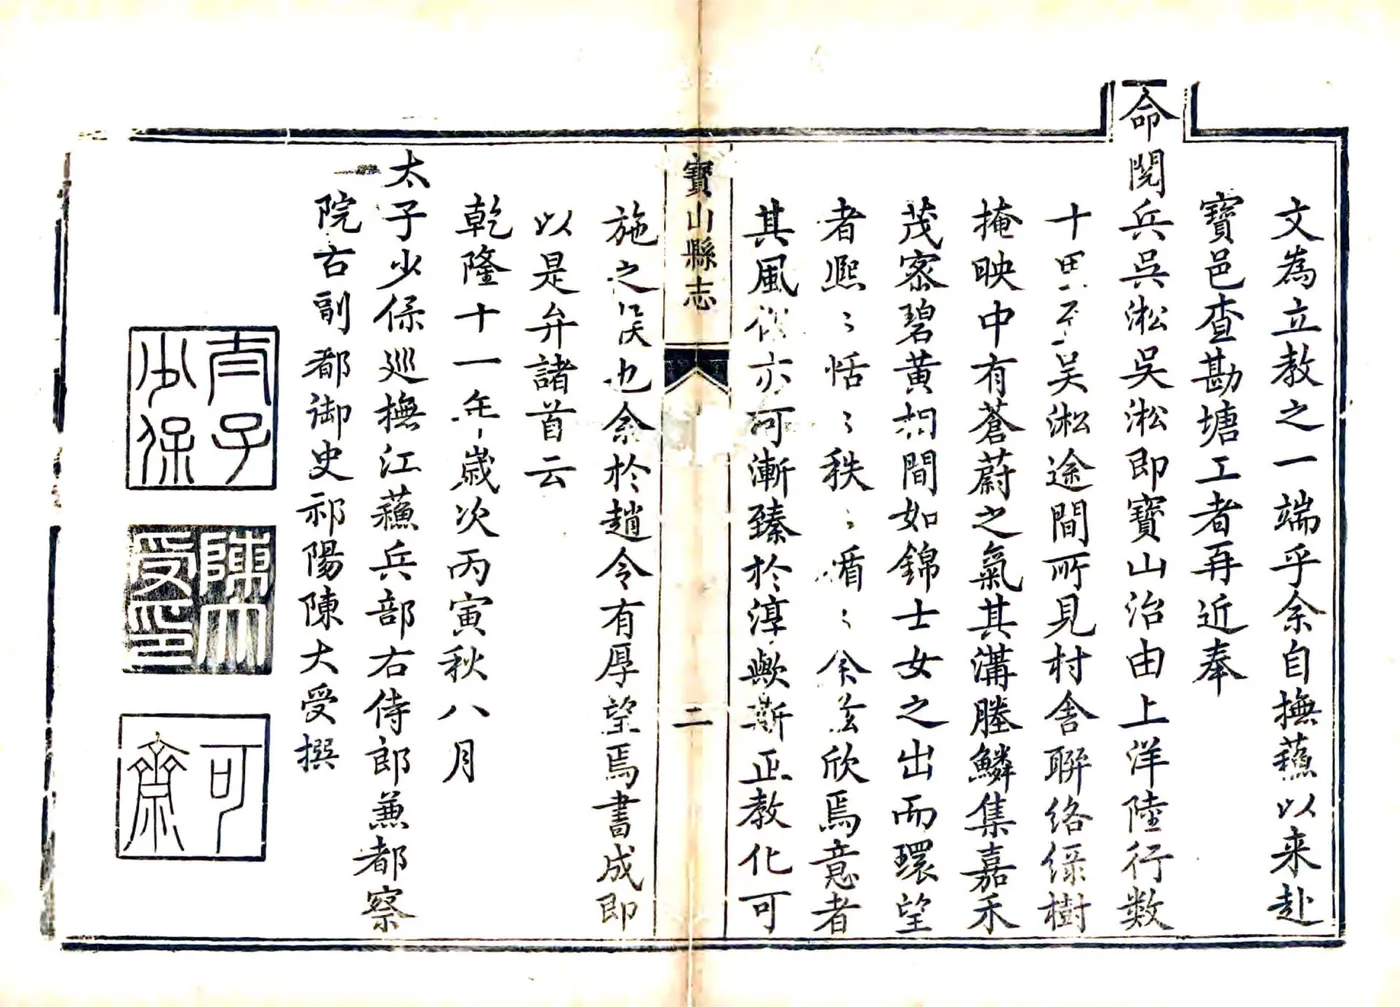 文為立教之一端乎余自撫蘓以来赴
寶邑查勘塘工者再近奉
命閱兵吳淞吳淞即寶山治由上洋陸行数
十里至吴淞途間所見村舍聨络緑樹
掩映中有蒼蔚之氣其溝塍鱗集嘉禾
茂宻碧黄相間如錦士女之出而環望
者熈〻恬〻秩〻循〻余益欣焉意者
其風俗亦可漸臻於淳歟斯正教化可
寶山縣志
二
施之候也余於趙令有厚望焉書成即
以是弁諸首云
乾隆十一年歳次丙寅秋八月
太子少保巡撫江蘓兵部右侍郎兼都察
院右副都御史祁陽陳大受撰
太子少保
陳大受印
可齋